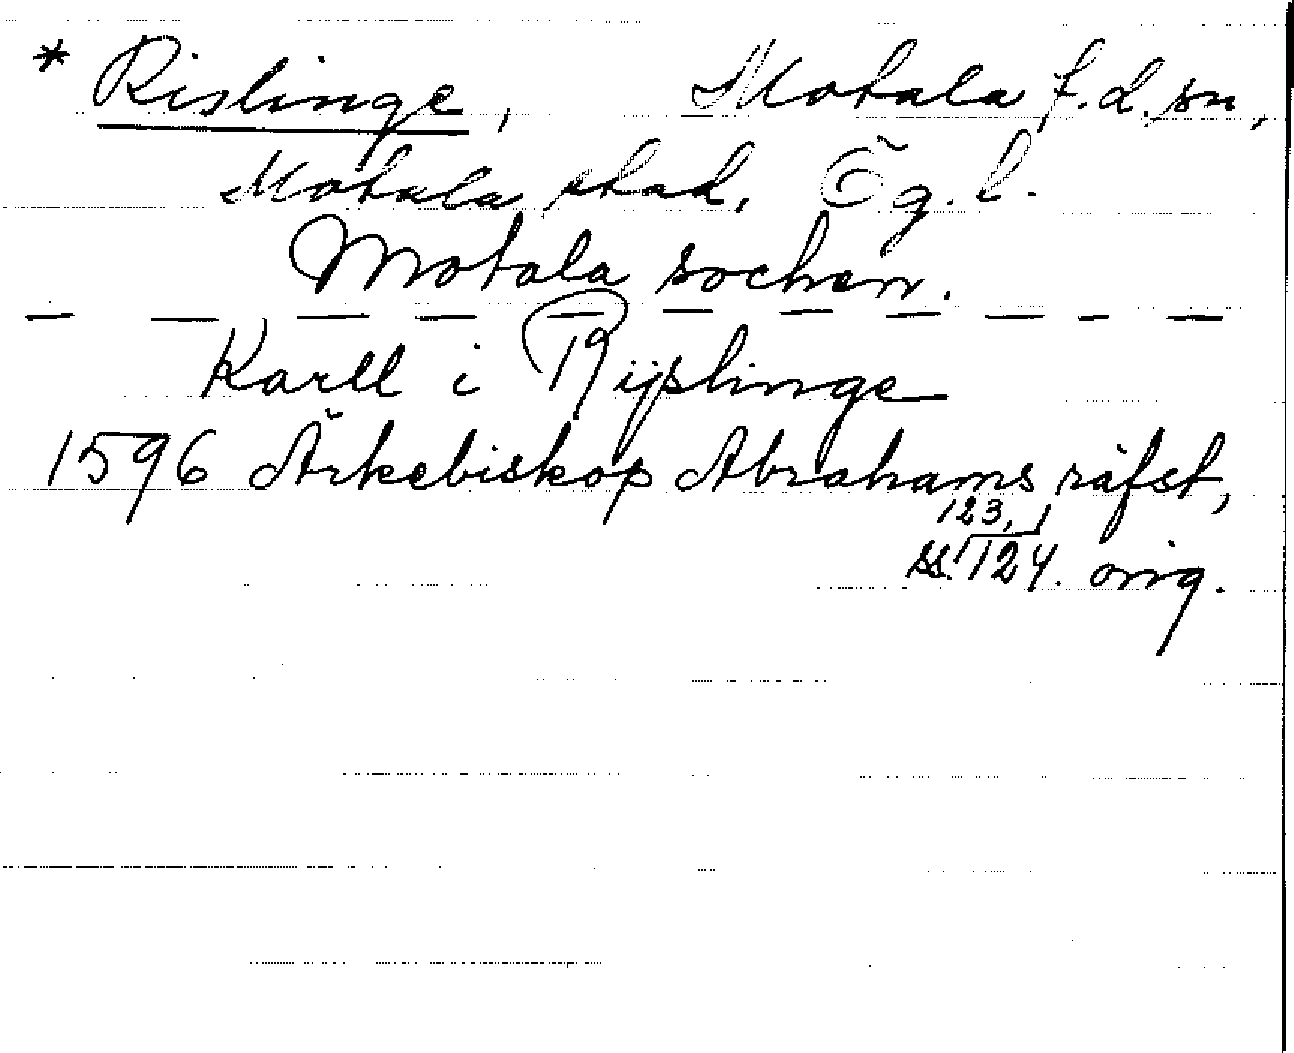 * Rislinge, Motala f.d. sn,
Motala stad, Ög. l.
Motala sochen.
Karll i Rijslinge
1596 Ärkebiskop Abrahams räfst,
123,
ss. 124. orig.